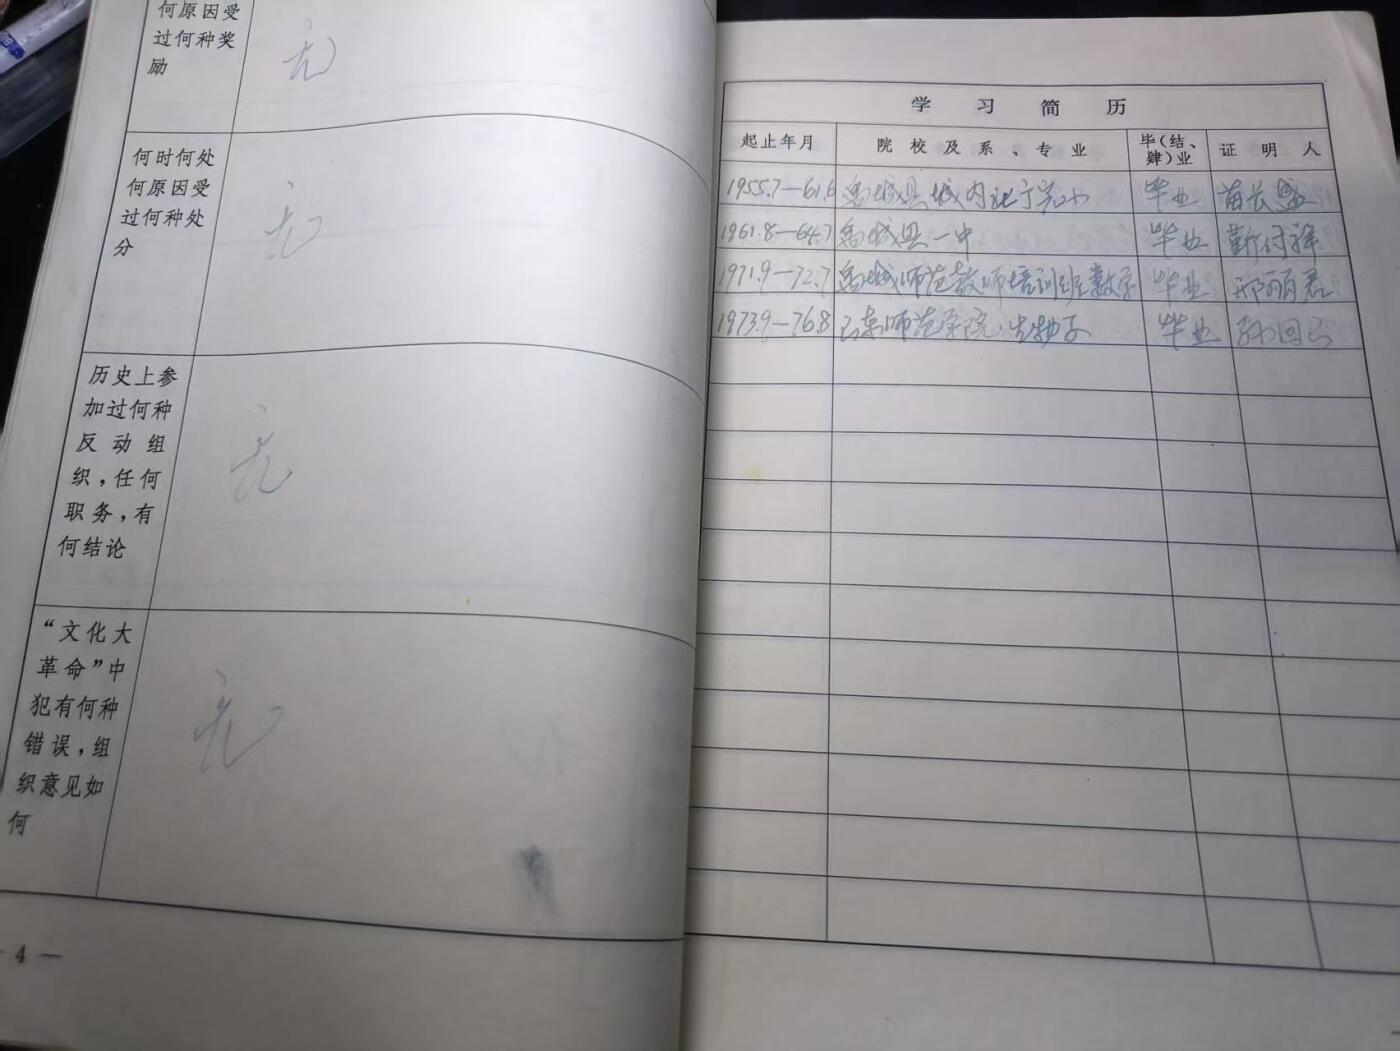 何原因受
过何种奖
励
无
何时何处
何原因受
过何种处
分
无
历史上参
加过何种
反动组
织，任何
职务，有
何结论
无
“文化大
革命”中
犯有何种
错误，组
织意见如
何
无
4 —
学习简历
起止年月 院校及系、专业 毕(结、肄)业 证明人
1955.7—61.6 禹城县城内 完小 毕业 苗长盛
1961.8—64.7 禹城县一中 毕业 靳付祥
1971.9—72.7 禹城师范教师培训班数学 毕业 邢丽君
1973.9—76.8 山东师范学院生物系 毕业